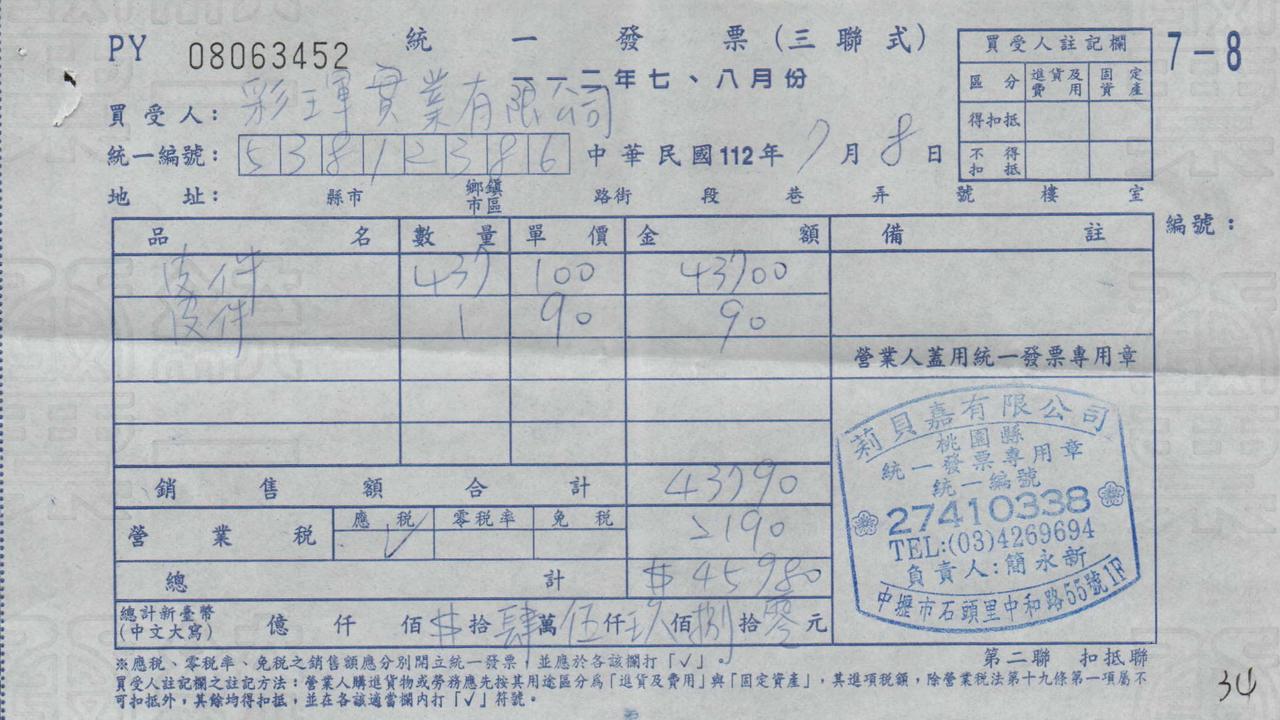 PY 08063452 統一發票(三聯式)
一一二年七、八月份
7-8
買受人註記欄
區分 進貨及費用 固定資產
得扣抵
不得扣抵
買受人:彩琿實業有限公司
統一編號:53812386 中華民國112年7月8日
地址: 縣市 鄉鎮市區 路街 段 巷 弄 號 樓 室
編號:
品名 數量 單價 金額 備註
皮件 437 100 43700
皮件 1 90 90
營業人蓋用統一發票專用章
銷售額合計 43790
營業稅 應稅 ✓ 零稅率 免稅 2190
總計 $45980
總計新臺幣(中文大寫) 億 仟 佰 $ 拾 肆 萬 伍 仟 玖 佰 捌 拾 零 元
莉貝嘉有限公司
桃園縣
統一發票專用章
統一編號
27410338
TEL:(03)4269694
負責人:簡永新
中壢市石頭里中和路55號1F
※應稅、零稅率、免稅之銷售額應分別開立統一發票,並應於各該欄打「✓」。
第二聯 扣抵聯
買受人註記欄之註記方法:營業人購進貨物或勞務應先按其用途區分為「進貨及費用」與「固定資產」,其進項稅額,除營業稅法第十九條第一項屬不
可扣抵外,其餘均得扣抵,並在各該適當欄內打「✓」符號。